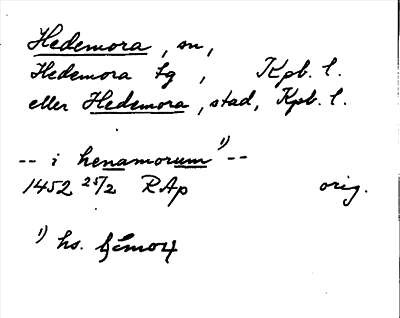 Hedemora, sn,
Hedemora tg, Kpb. l.
eller Hedemora, stad, Kpb. l.
-- i henamorum 1) --
1452 25/2 RAp orig.
1) hs.